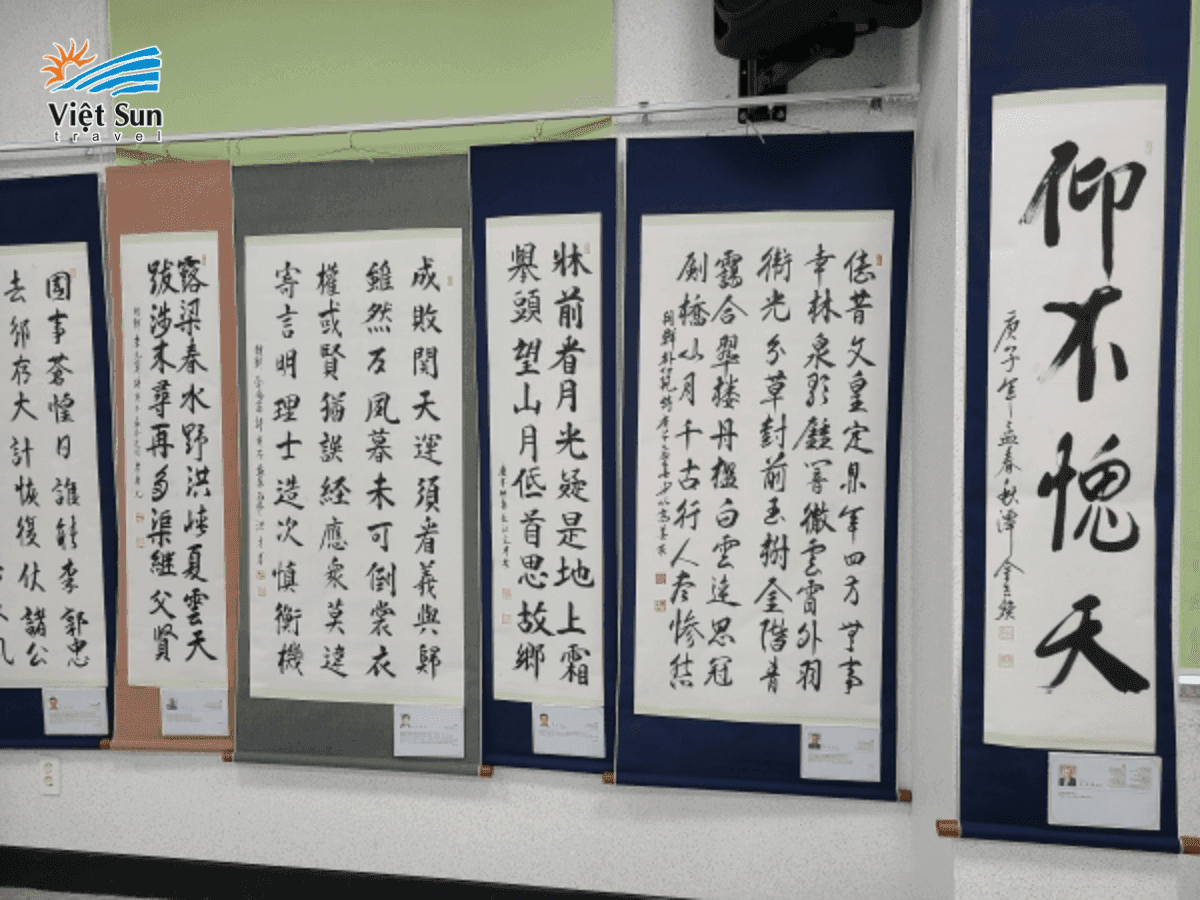 Việt Sun
travel
仰不愧天
庚子年孟春秋潭金
憶昔文皇定鼎年四方無事
幸林泉歌鍾響徹雲霄外羽
衛光分草對前玉樹金階青
靄合翠楼丹檻白雲連思冠
劍橋山月千古行人盡慘結
牀前看月光疑是地上霜
擧頭望山月低首思故鄉
成敗関天運須看義與歸
雖然反夙暮未可倒裳衣
權或賢猶誤經應衆莫違
寄言明理士造次慎衡機
露梁春水野洪峽夏雲天
跋涉未尋再多渠継父賢
國事蒼惶日誰能李郭忠
去邠存大計恢復仗諸公